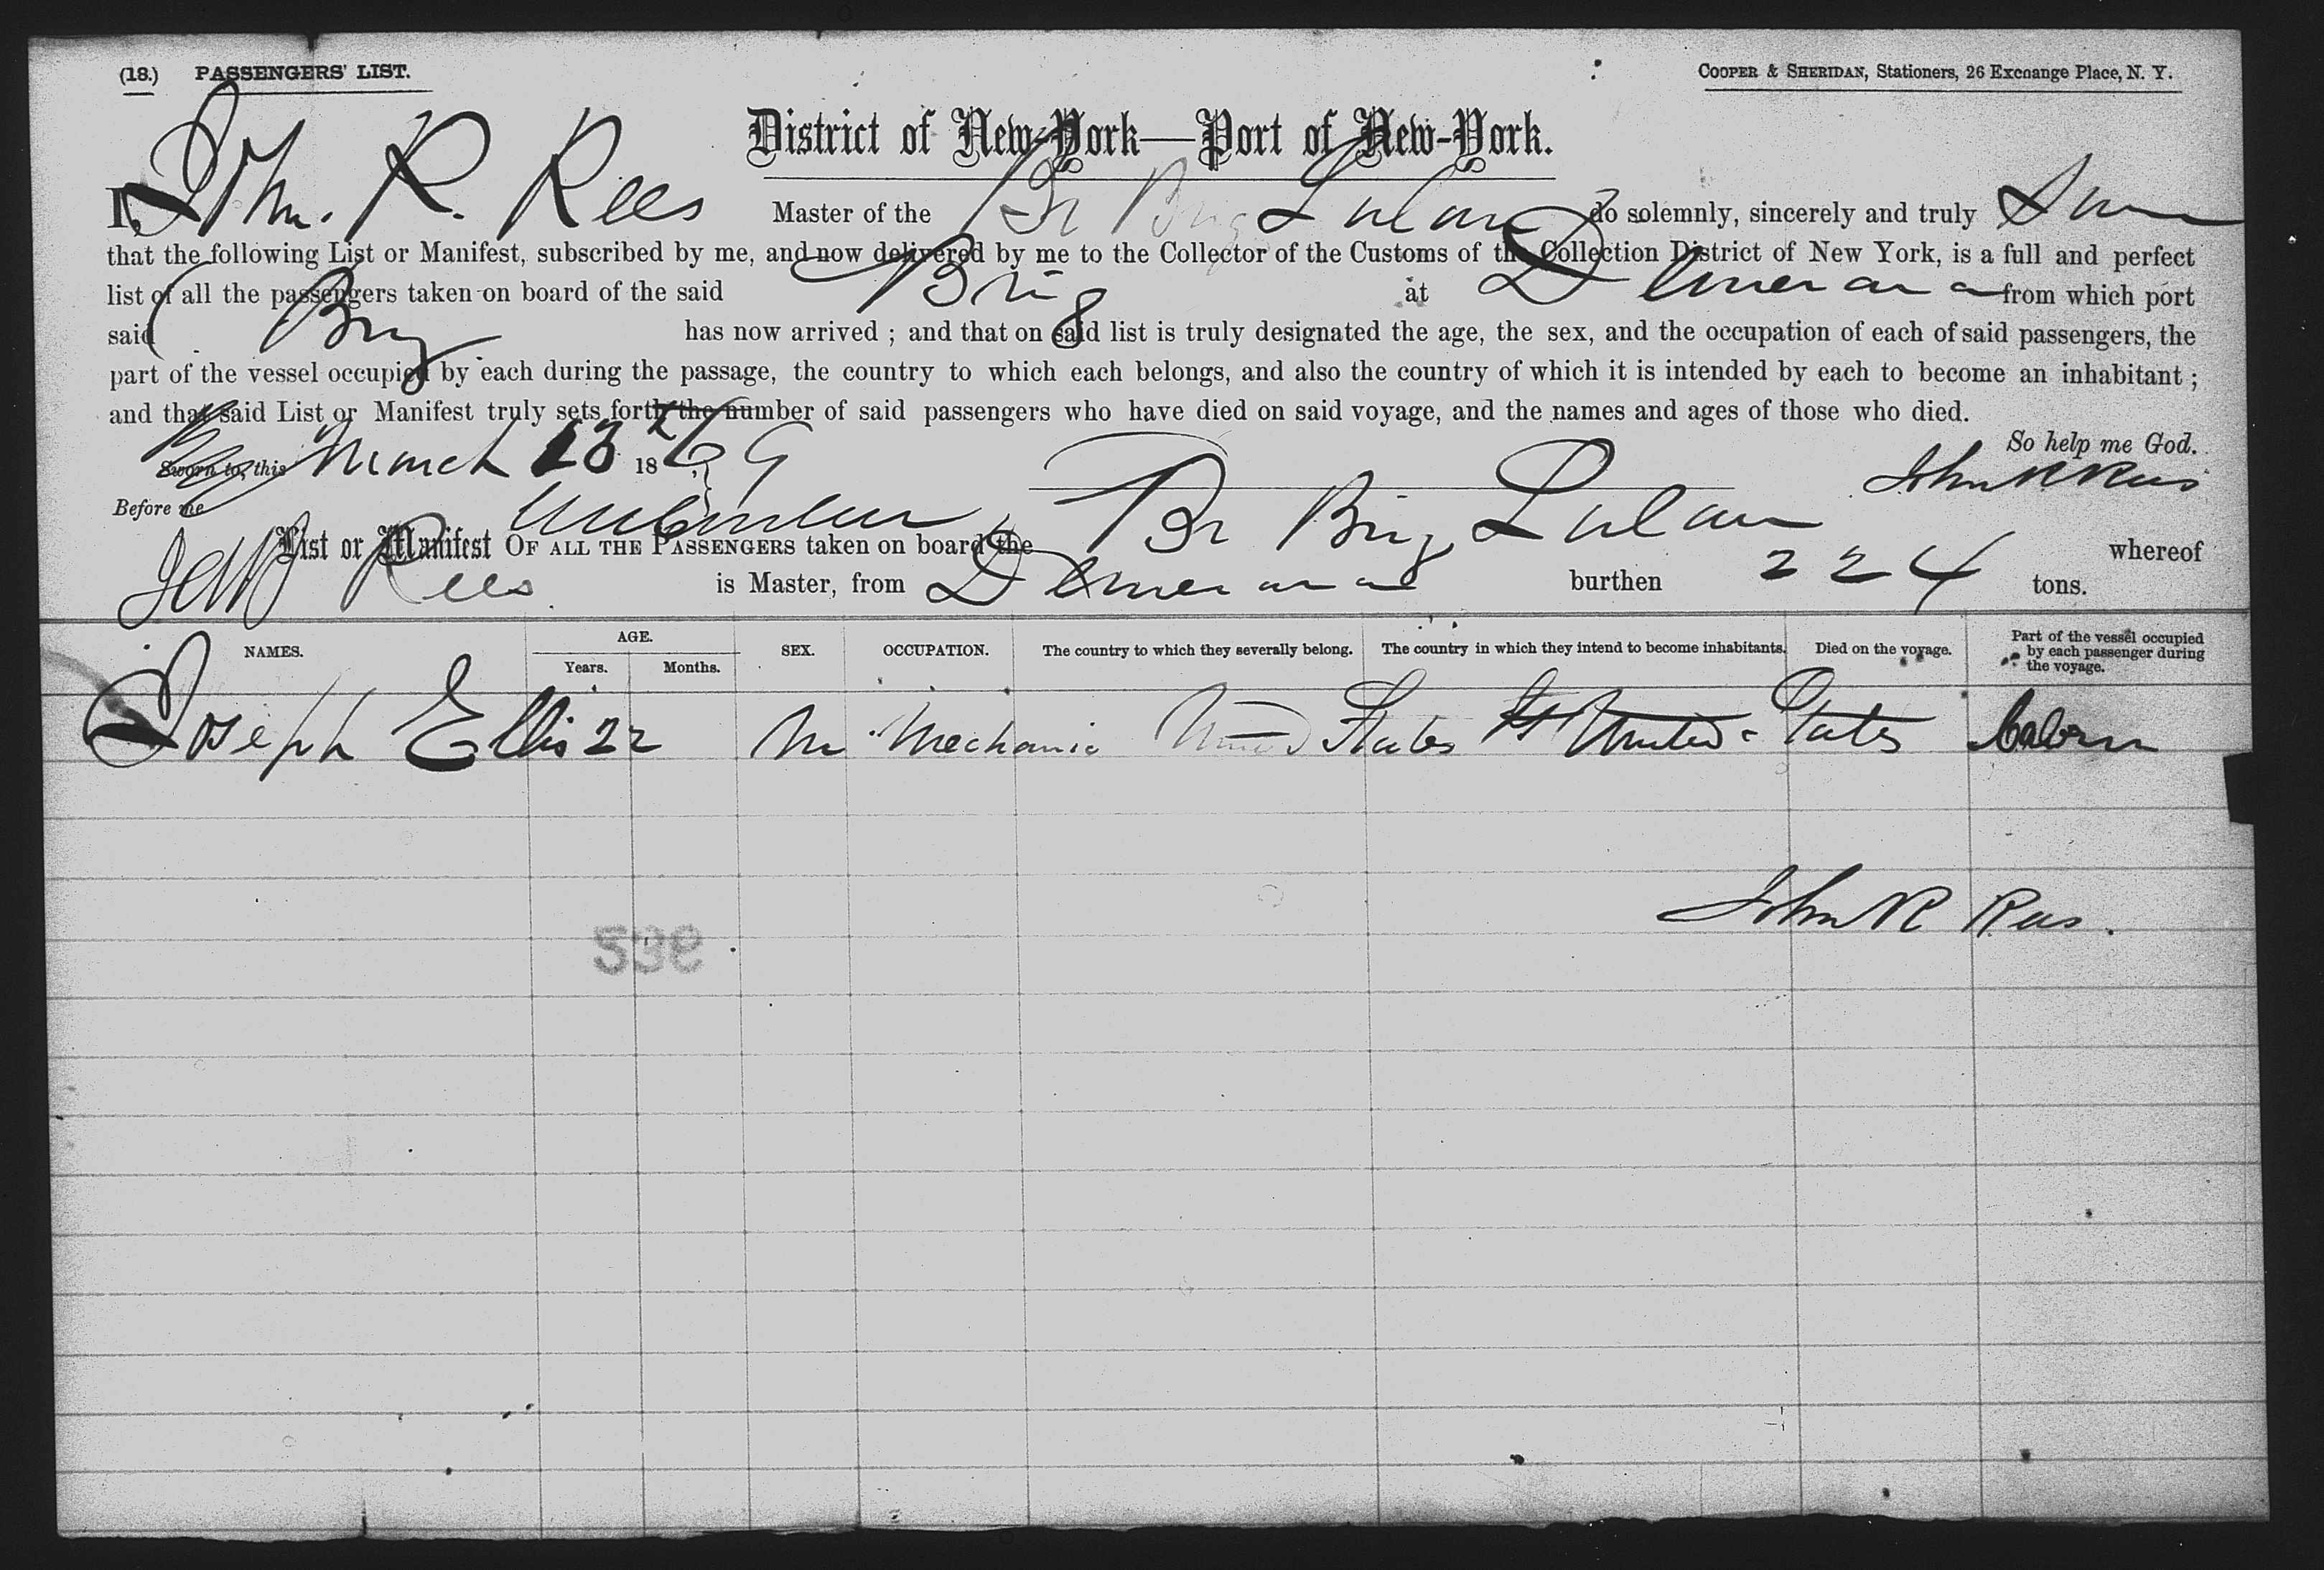 (18.) PASSENGERS' LIST. COOPER & SHERIDAN, Stationers, 26 Exchange Place, N. Y.
District of New-York—Port of New-York.
I, John. R. Rees Master of the Br Brig Lulan do solemnly, sincerely and truly Swear
that the following List or Manifest, subscribed by me, and now delivered by me to the Collector of the Customs of the Collection District of New York, is a full and perfect
list of all the passengers taken on board of the said Brig at Demerara from which port
said Brig has now arrived ; and that on said list is truly designated the age, the sex, and the occupation of each of said passengers, the
part of the vessel occupied by each during the passage, the country to which each belongs, and also the country of which it is intended by each to become an inhabitant ;
and that said List or Manifest truly sets forth the number of said passengers who have died on said voyage, and the names and ages of those who died.
So help me God.
Sworn to, this March 1869 John R Rees
Before me
List or Manifest OF ALL THE PASSENGERS taken on board the Br Brig Lulan whereof
Rees is Master, from Demerara burthen 224 tons.
NAMES. AGE. Years. Months. SEX. OCCUPATION. The country to which they severally belong. The country in which they intend to become inhabitants. Died on the voyage. Part of the vessel occupied by each passenger during the voyage.
Joseph Ellis 22 M Mechanic United States United States Cabin
John R Rees.